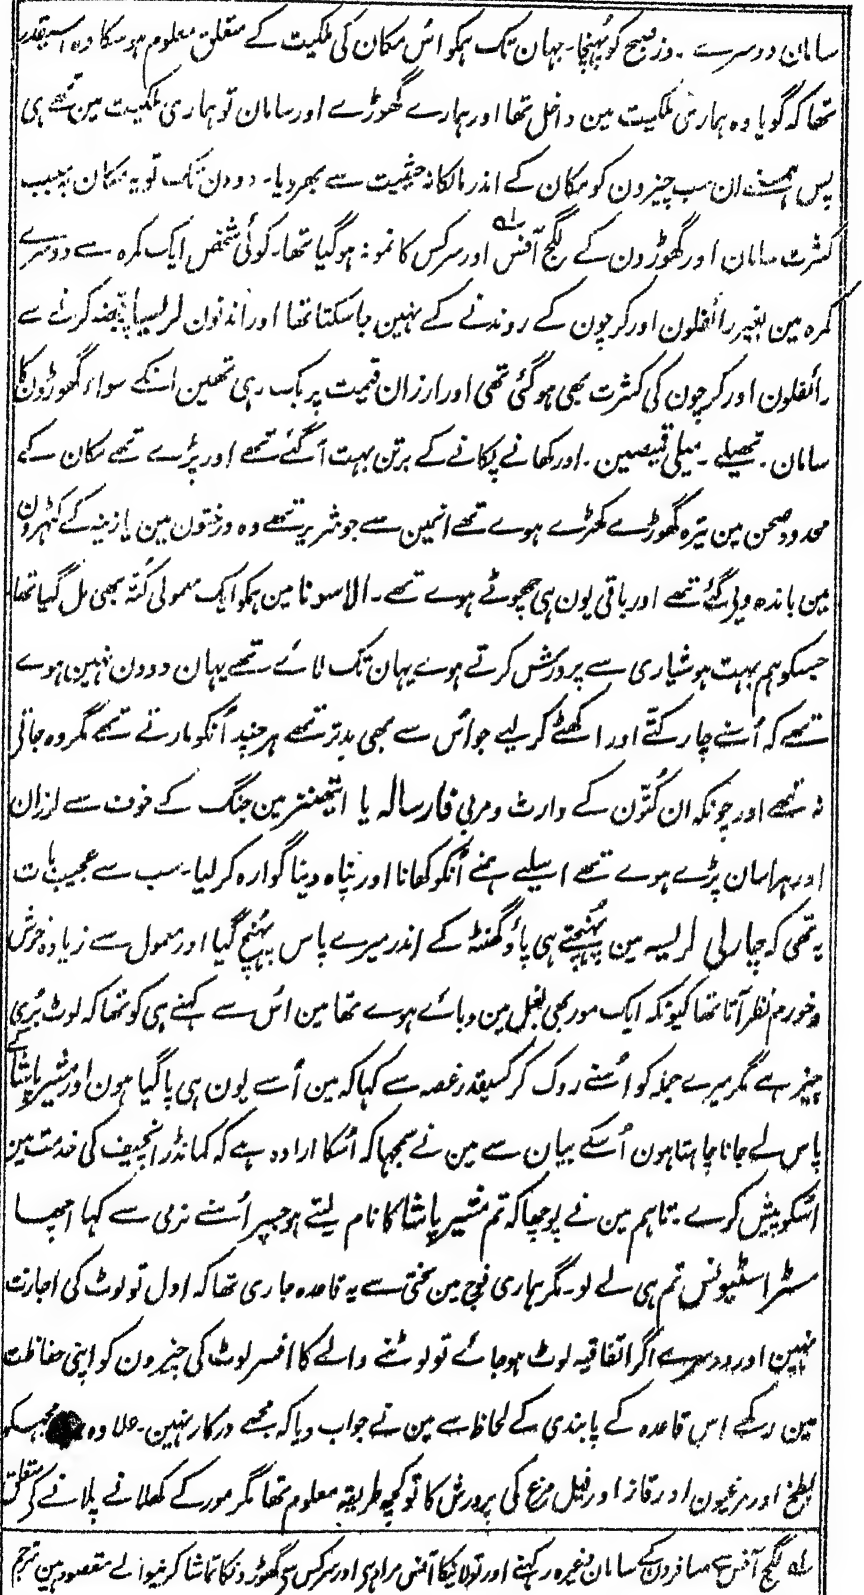 سامان دوسرے ۔ وز صبح کو پُہنچا۔ جہان تک ہمکو اُس مکان کی ملکیت کے متعلق معلوم ہو سکا وہ اسیقدر
تھا کہ گویا وہ ہماری ملکیت مین داخل تھا اور ہمارے گھوڑے اور سامان تو ہماری ملکیت مین تھے ہی
پس ہمنے ان سب چیزون کو مکان کے اندر مالکانہ حیثیت سے بھر دیا۔ دو دن تک تو یہ مکان بسبب
کثرت سامان اور گھوڑون کے لگج آفس اور سرکس کا نمونہ ہو گیا تھا۔ کوئی شخص ایک کمرہ سے دوسرے
کمرہ مین بغیر رائفلون اور کرچون کے روندنے کے نہین جا سکتا تھا اور اندنون لریسا پر قبضہ کرنے سے
رائفلون اور کرچون کی کثرت بھی ہو گئی تھی اور ارزان قیمت پر بک رہی تھین اسکے سواء گھوڑون کا
سامان ۔ تھیلے ۔ میلی قمیصین ۔ اور کھانے پکانے کے برتن بہت آ گئے تھے اور پڑے تھے مکان کے
محدود صحن مین تیرہ گھوڑے کھڑے ہوے تھے انمین سے جو شریر تھے وہ درختون مین یا زینہ کے کٹہرون
مین باندہ دیے گئے تھے اور باقی یون ہی چھوٹے ہوے تھے۔ الاسونا مین ہمکو ایک معمولی کُتہ بھی مل گیا تھا
جسکو ہم بہت ہوشیاری سے پرورش کرتے ہوے یہان تک لاے تھے یہان دو دن نہین ہوے
تھے کہ اُسنے چار کتّے اور اکھٹے کر لیے جو اُس سے بھی بدتر تھے ہر چند اُنکو مارتے تھے مگر وہ جاتے
نہ تھے اور چونکہ ان کُتّون کے وارث و مربی فارسالہ یا اتھینز مین جنگ کے خوف سے لرزان
اور ہراسان پڑے ہوے تھے اسلیے ہمنے اُنکو کھانا اور پناہ دینا گوارہ کر لیا۔ سب سے عجیب بات
یہ تھی کہ چارلی لریسہ مین پُہنچتے ہی پاؤ گھنٹہ کے اندر میرے پاس پہنچ گیا اور معمول سے زیادہ خوش
و خورم نظر آتا تھا کیونکہ ایک مور بھی بغل مین دبائے ہوے تھا مین اُس سے کہنے ہی کو تھا کہ لوٹ بُری
چیز ہے مگر میرے جملہ کو اُسنے روک کر کسیقدر غصہ سے کہا کہ مین اُسے یون ہی پا گیا ہون اور مشیر پاشا کے
پاس لے جانا چاہتا ہون اُسکے بیان سے مین نے سمجہا کہ اُسکا ارادہ ہے کہ کمانڈر انچیف کی خدمت مین
اسکو پیش کرے ۔ تاہم مین نے پوچھا کہ تم مشیر پاشا کا نام لیتے ہو جسپر اُسنے نرمی سے کہا اچھا
مسٹر اسٹیونس تم ہی لے لو۔ مگر ہماری فوج مین سختی سے یہ قاعدہ جاری تھا کہ اول تو لوٹ کی اجازت
نہین اور دوسرے اگر اتفاقیہ لوٹ ہو جائے تو لوٹنے والے کا افسر لوٹ کی چیزون کو اپنی حفاظت
مین رکھے اس قاعدہ کے پابندی کے لحاظ سے مین نے جواب دیا کہ مجھے درکار نہین۔ علاوہ مجہکو
بطخ اور مرغیون اور قاز اور فیل مرغ کی پرورش کا تو کچھ طریقہ معلوم تھا مگر مور کے کھلانے پلانے کے متعلق
لہ لگج آفس سے مسافرون کے سامان وغیرہ رکہنے اور تولانیکا آفس مراد ہی اور سرکس سی گھوڑونکا تماشا کرنیوالے مقصود ہین مترجم